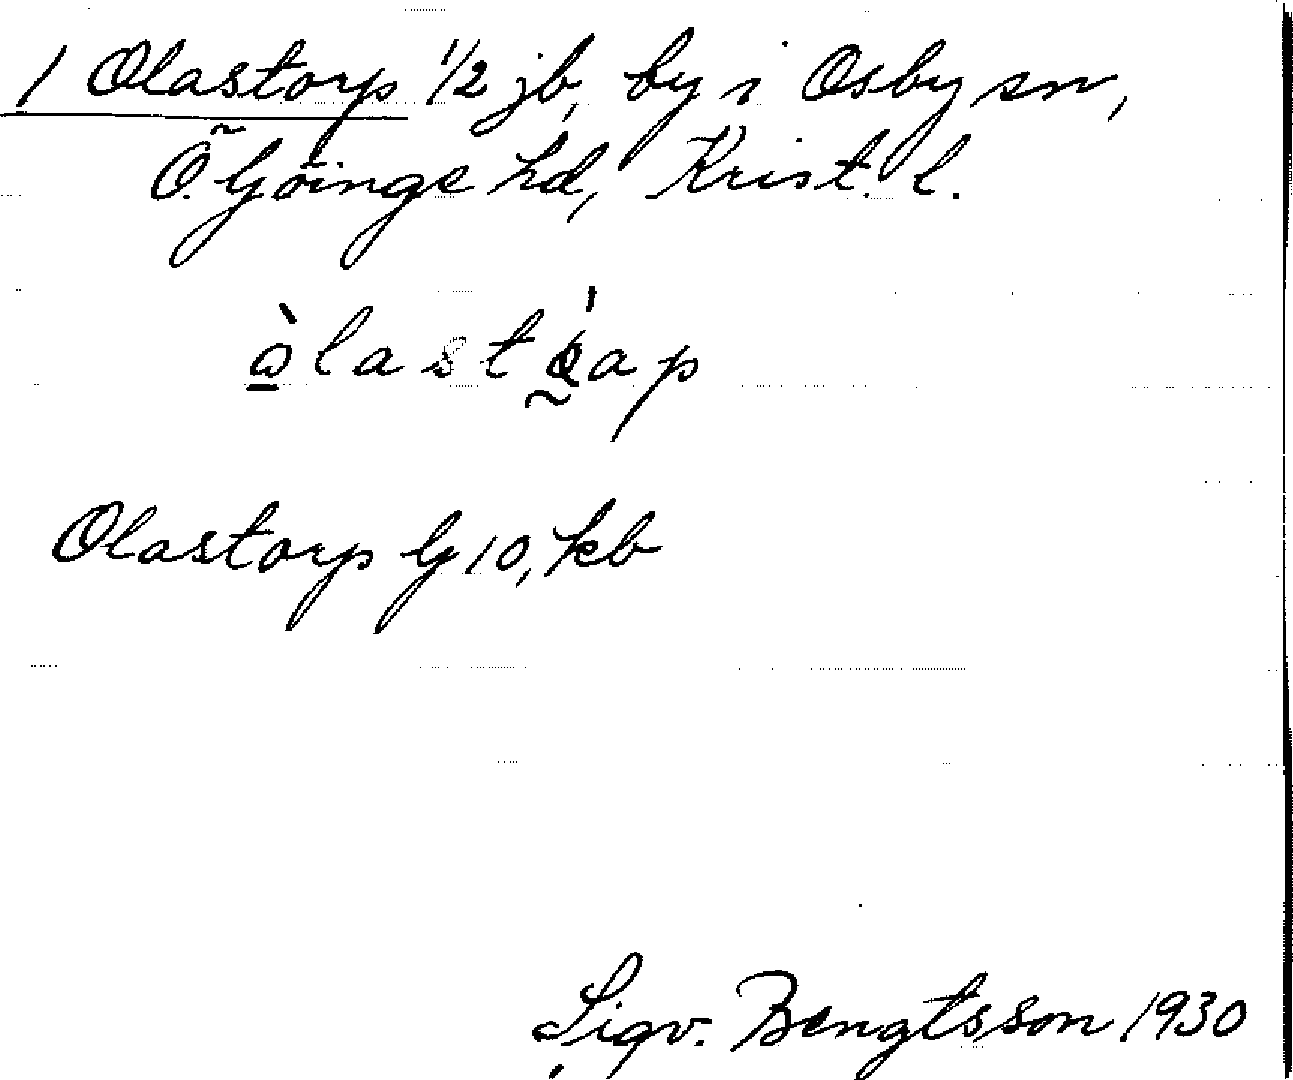 1 Olastorp 1/2 jb, by i Osby sn,
Ö. Göinge hd, Krist. l.
Olastorp G 10, kb
Sigv. Bengtsson 1930